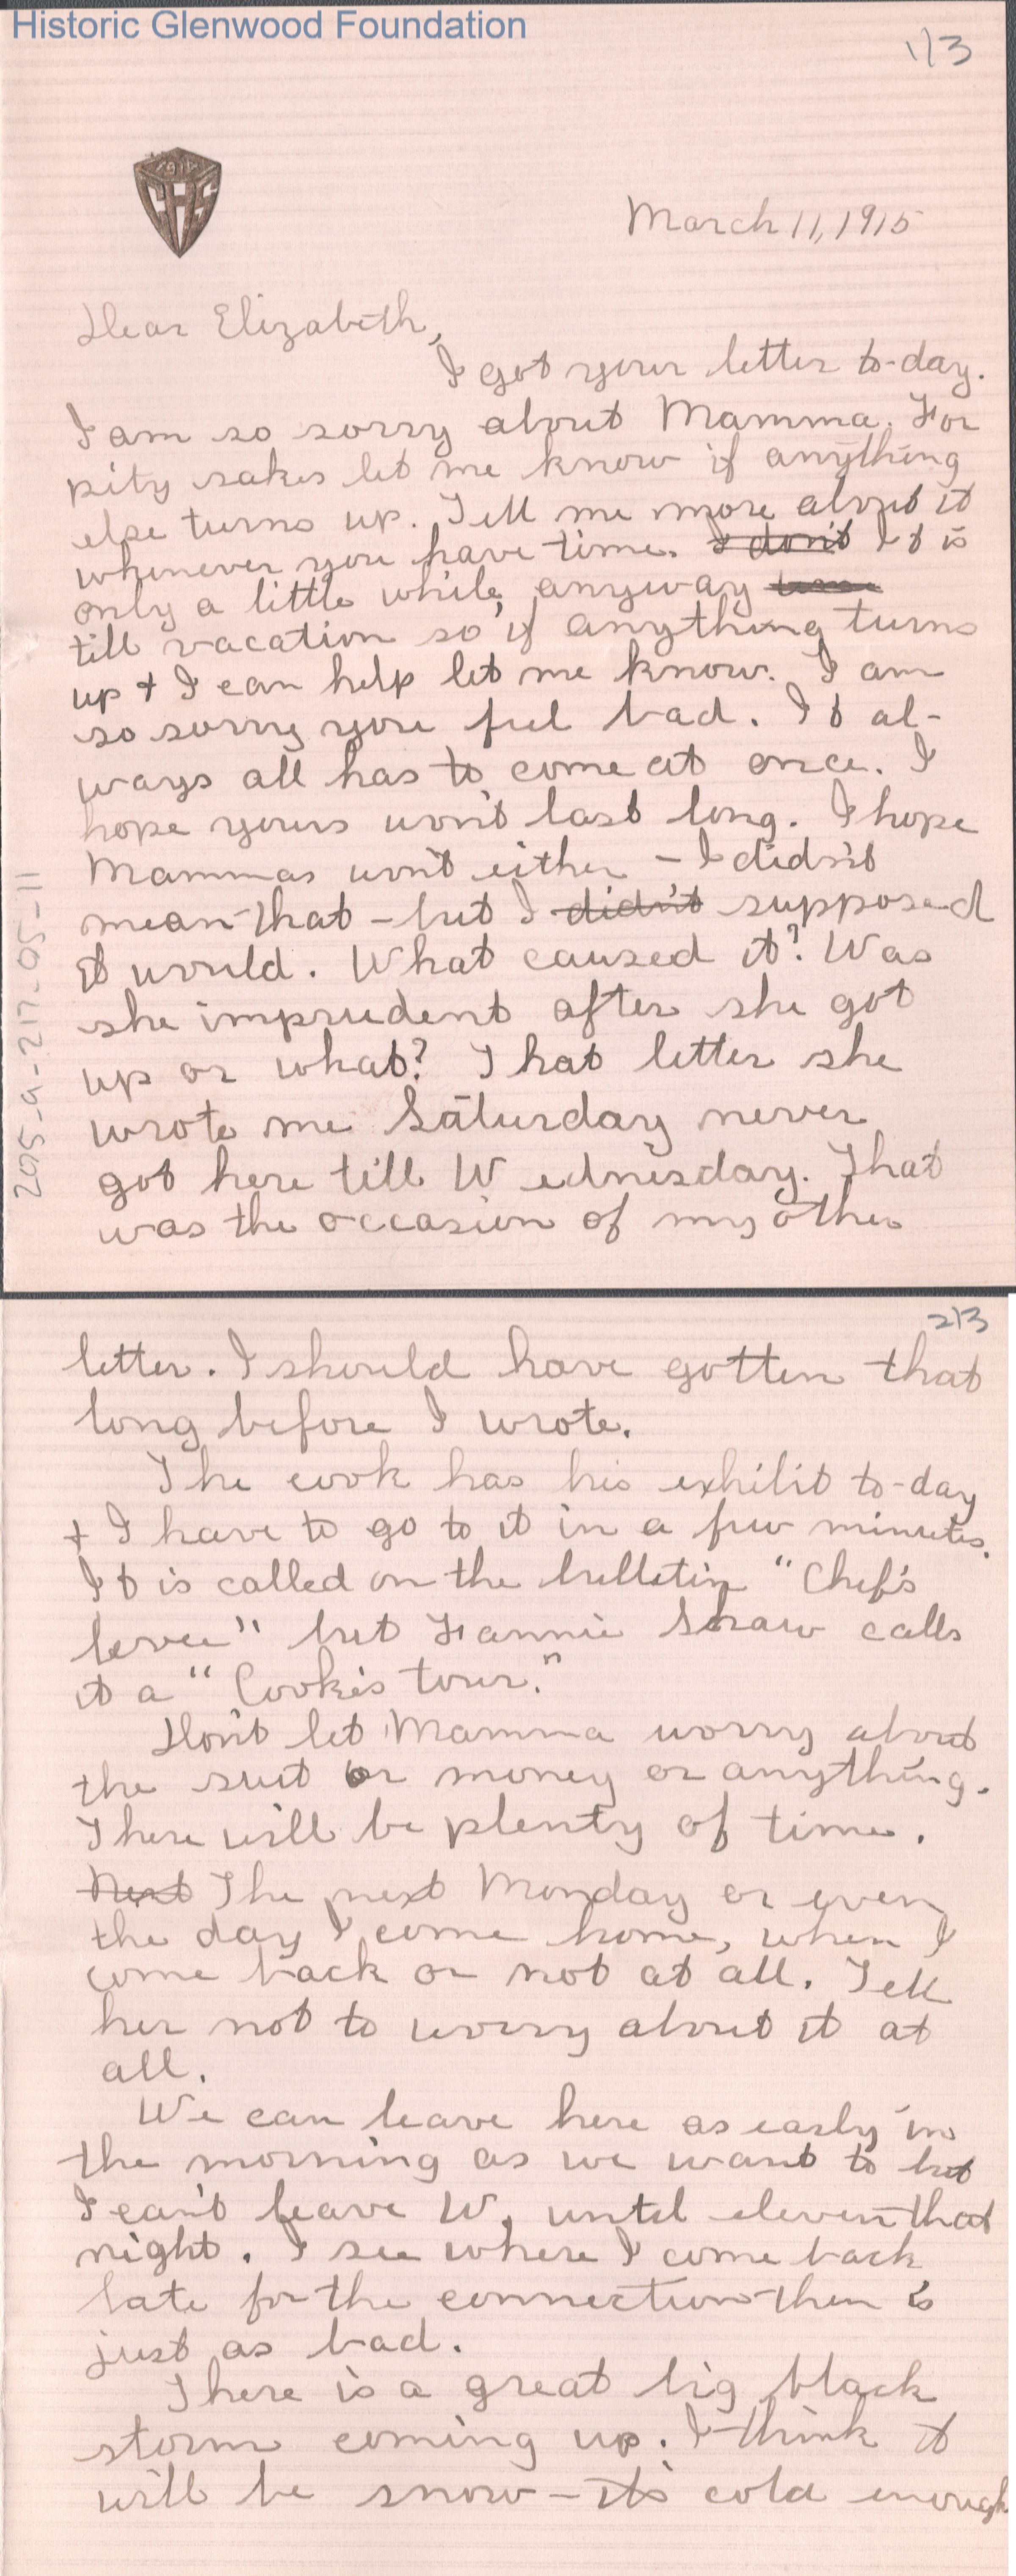 Historic Glenwood Foundation
1/3
1914
CHS
March 11, 1915
Dear Elizabeth,
I got your letter to-day.
I am so sorry about Mamma. For
pity sakes let me know if anything
else turns up. Tell me more about it
whenever you have time. I don't It is
only a little while, anyway
till vacation so if anything turns
up + I can help let me know. I am
so sorry you feel bad. It al-
ways all has to come at once. I
hope yours won't last long. I hope
Mammas won't either – I didn't
mean that – but I didn't supposed
it would. What caused it? Was
she imprudent after she got
up or what? That letter she
wrote me Saturday never
got here till Wednesday. That
was the occasion of my other
2015-9-217-05-11
2/3
letter. I should have gotten that
long before I wrote.
The cook has his exhibit to-day
+ I have to go to it in a few minutes.
It is called on the bulletin "Chef's
levee" but Fannie Shaw calls
it a "Cook's tour."
Don't let Mamma worry about
the suit or money or anything.
There will be plenty of time.
Next The next Monday or even
the day I come home, when I
come back or not at all. Tell
her not to worry about it at
all.
We can leave here as early in
the morning as we want to but
I can't leave W. until eleven that
night. I see where I come back
late for the connection then is
just as bad.
There is a great big black
storm coming up. I think it
will be snow – its cold enough